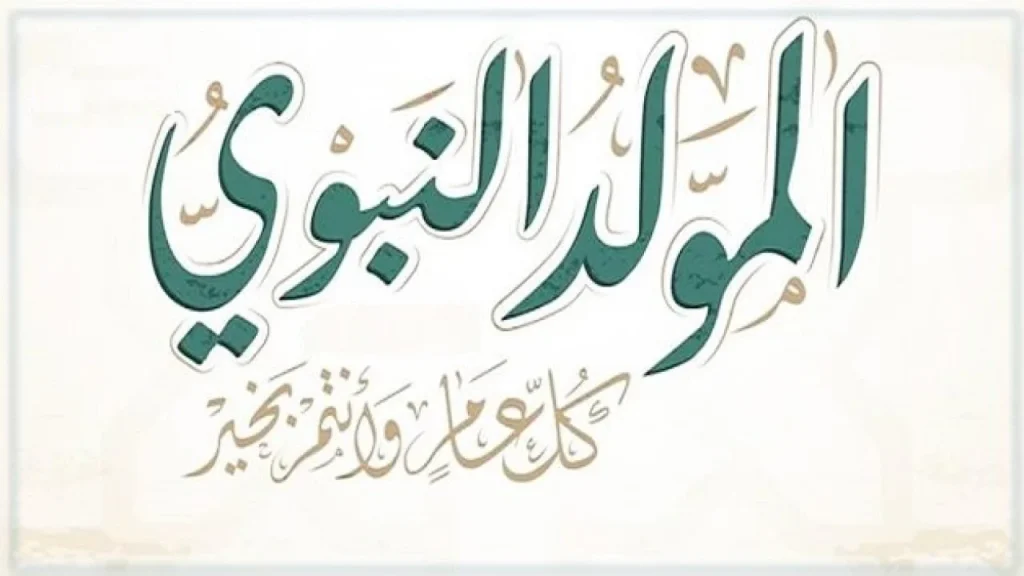 المولد النبوي
كُلُّ عَامٍ وَأَنتُمْ بِخَيْر